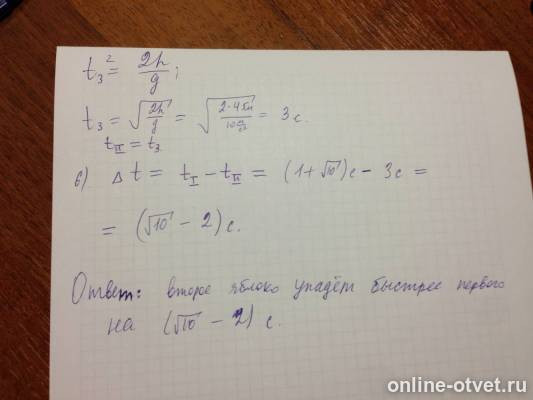 t₃² = 2h/g;
t₃ = √(2h/g) = √(2·45м/10 м/с²) = 3 с.
t_II = t₃
6) Δt = t_I − t_II = (1+√10)с − 3с =
= (√10 − 2) с.
Ответ: второе яблоко упадёт быстрее первого
на (√10 − 2) с.
online-otvet.ru